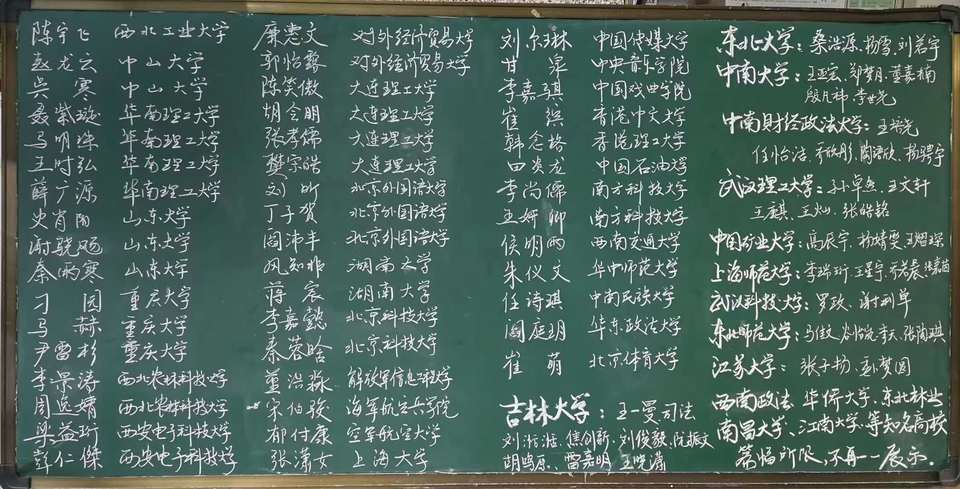 陈宇飞 西北工业大学
赵龙云 中山大学
吴寒 中山大学
聂紫璇 华南理工大学
马明珠 华南理工大学
王时弘 华南理工大学
薛广源 华南理工大学
史肖陶 山东大学
谢骁飏 山东大学
秦雨寒 山东大学
刁园 重庆大学
马赫 重庆大学
尹雷杉 重庆大学
李景涛 西北农林科技大学
周选婿 西北农林科技大学
梁益珩 西安电子科技大学
彭仁傑 西安电子科技大学
廉惠文 对外经济贸易大学
郭怡豫 对外经济贸易大学
陈笑傲 大连理工大学
胡会明 大连理工大学
张孝儒 大连理工大学
樊宗皓 大连理工大学
刘昕 北京外国语大学
丁子贺 北京外国语大学
阎沛丰 北京外国语大学
风知非 湖南大学
蒋宸 湖南大学
李嘉懿 北京科技大学
秦蓉晗 北京科技大学
董洪淼 解放军信息工程大学
宋伯骏 海军航空兵学院
郁付康 空军航空大学
张潇女 上海大学
刘泉琳 中国传媒大学
甘泉 中央音乐学院
李嘉骐 中国戏曲学院
崔缤 香港中文大学
韩念格 香港理工大学
田炎龙 中国石油大学
李尚儒 南方科技大学
王妍卿 南方科技大学
侯明西 西南交通大学
朱仪文 华中师范大学
任诗琪 中南民族大学
阎庭玥 华东政法大学
崔萌 北京体育大学
吉林大学：王一曼 司法
刘淞淮、焦创新、刘俊毅、阮振文
胡鸣原、雷嘉明、王晓潇
东北大学：桑浩源、杨雪、刘若宇
中南大学：王亚宏、郑梦月、董嘉楠
殷凡祎、李世尧
中南财经政法大学：王曙光
任怡洁、乔欣彤、陶语欣、杨骋宇
武汉理工大学：孙卓然、王文轩
王麒、王灿、张皓铭
中国矿业大学：高辰宇、杨婧雯
上海师范大学：李瑞珩、王星宇、乔若晨
武汉科技大学：罗玫、谢利单
东北师范大学：马蛟、李天、张陶琪
江苏大学：张子扬、孟梦圆
西南政法、华侨大学、东北林业
南昌大学、江南大学、等知名高校
篇幅所限，不再一一展示。